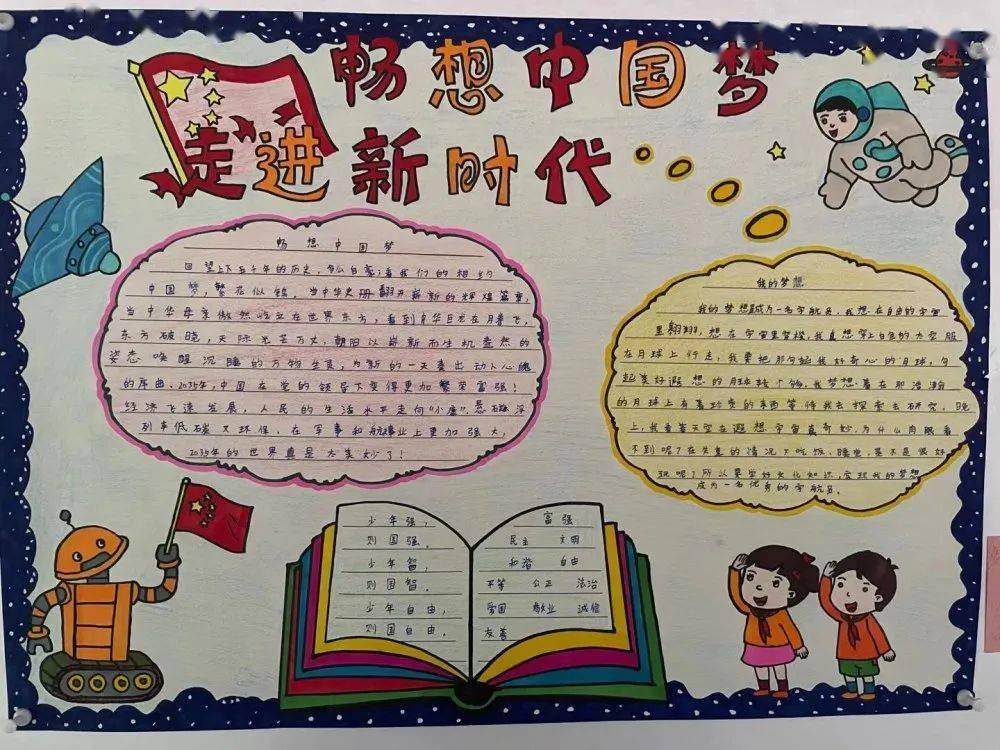 畅想中国梦
走进新时代
畅想中国梦
回望上下五千年的历史,怀着我们的相约
中国梦,繁花似锦,当中华史册翻开崭新的辉煌篇章,
当中华母亲傲然屹立在世界东方,看到中华巨龙在月春飞,
东方破晓,天际光芒万丈,朝阳以崭新而生机盎然的
姿态唤醒沉睡的万物生灵,为新的一天奏出动人心魄
的序曲。2035年,中国在党的领导下变得更加繁荣富强!
经济飞速发展,人民的生活水平走向“小康”,悬磁浮
列车低碳又环保,在军事和航事业上更加强大,
2035年的世界真是太美妙了!
我的梦想
我的梦想成为一名宇航员,我想在自由的宇宙
里翱翔,想在宇宙里穿梭,我真想穿上白色的太空服
在月球上行走,我要把那勾起我好奇心的月球,勾
起美好遐想的月球找个够,我梦想着在那浩瀚
的月球上有着珍贵的东西等待我去探索去研究。晚
上,我看着天空在遐想宇宙真奇妙,为什么肉眼看
不到呢?在失重的情况下吃饭,睡觉,是不是很好
玩呢?所以要学好文化知识,实现我的梦想
成为一名优秀的宇航员。
少年强,
则国强。
少年智,
则国智。
少年自由,
则国自由。
富强
民主 文明
和谐 自由
平等 公正 法治
爱国 敬业 诚信
友善